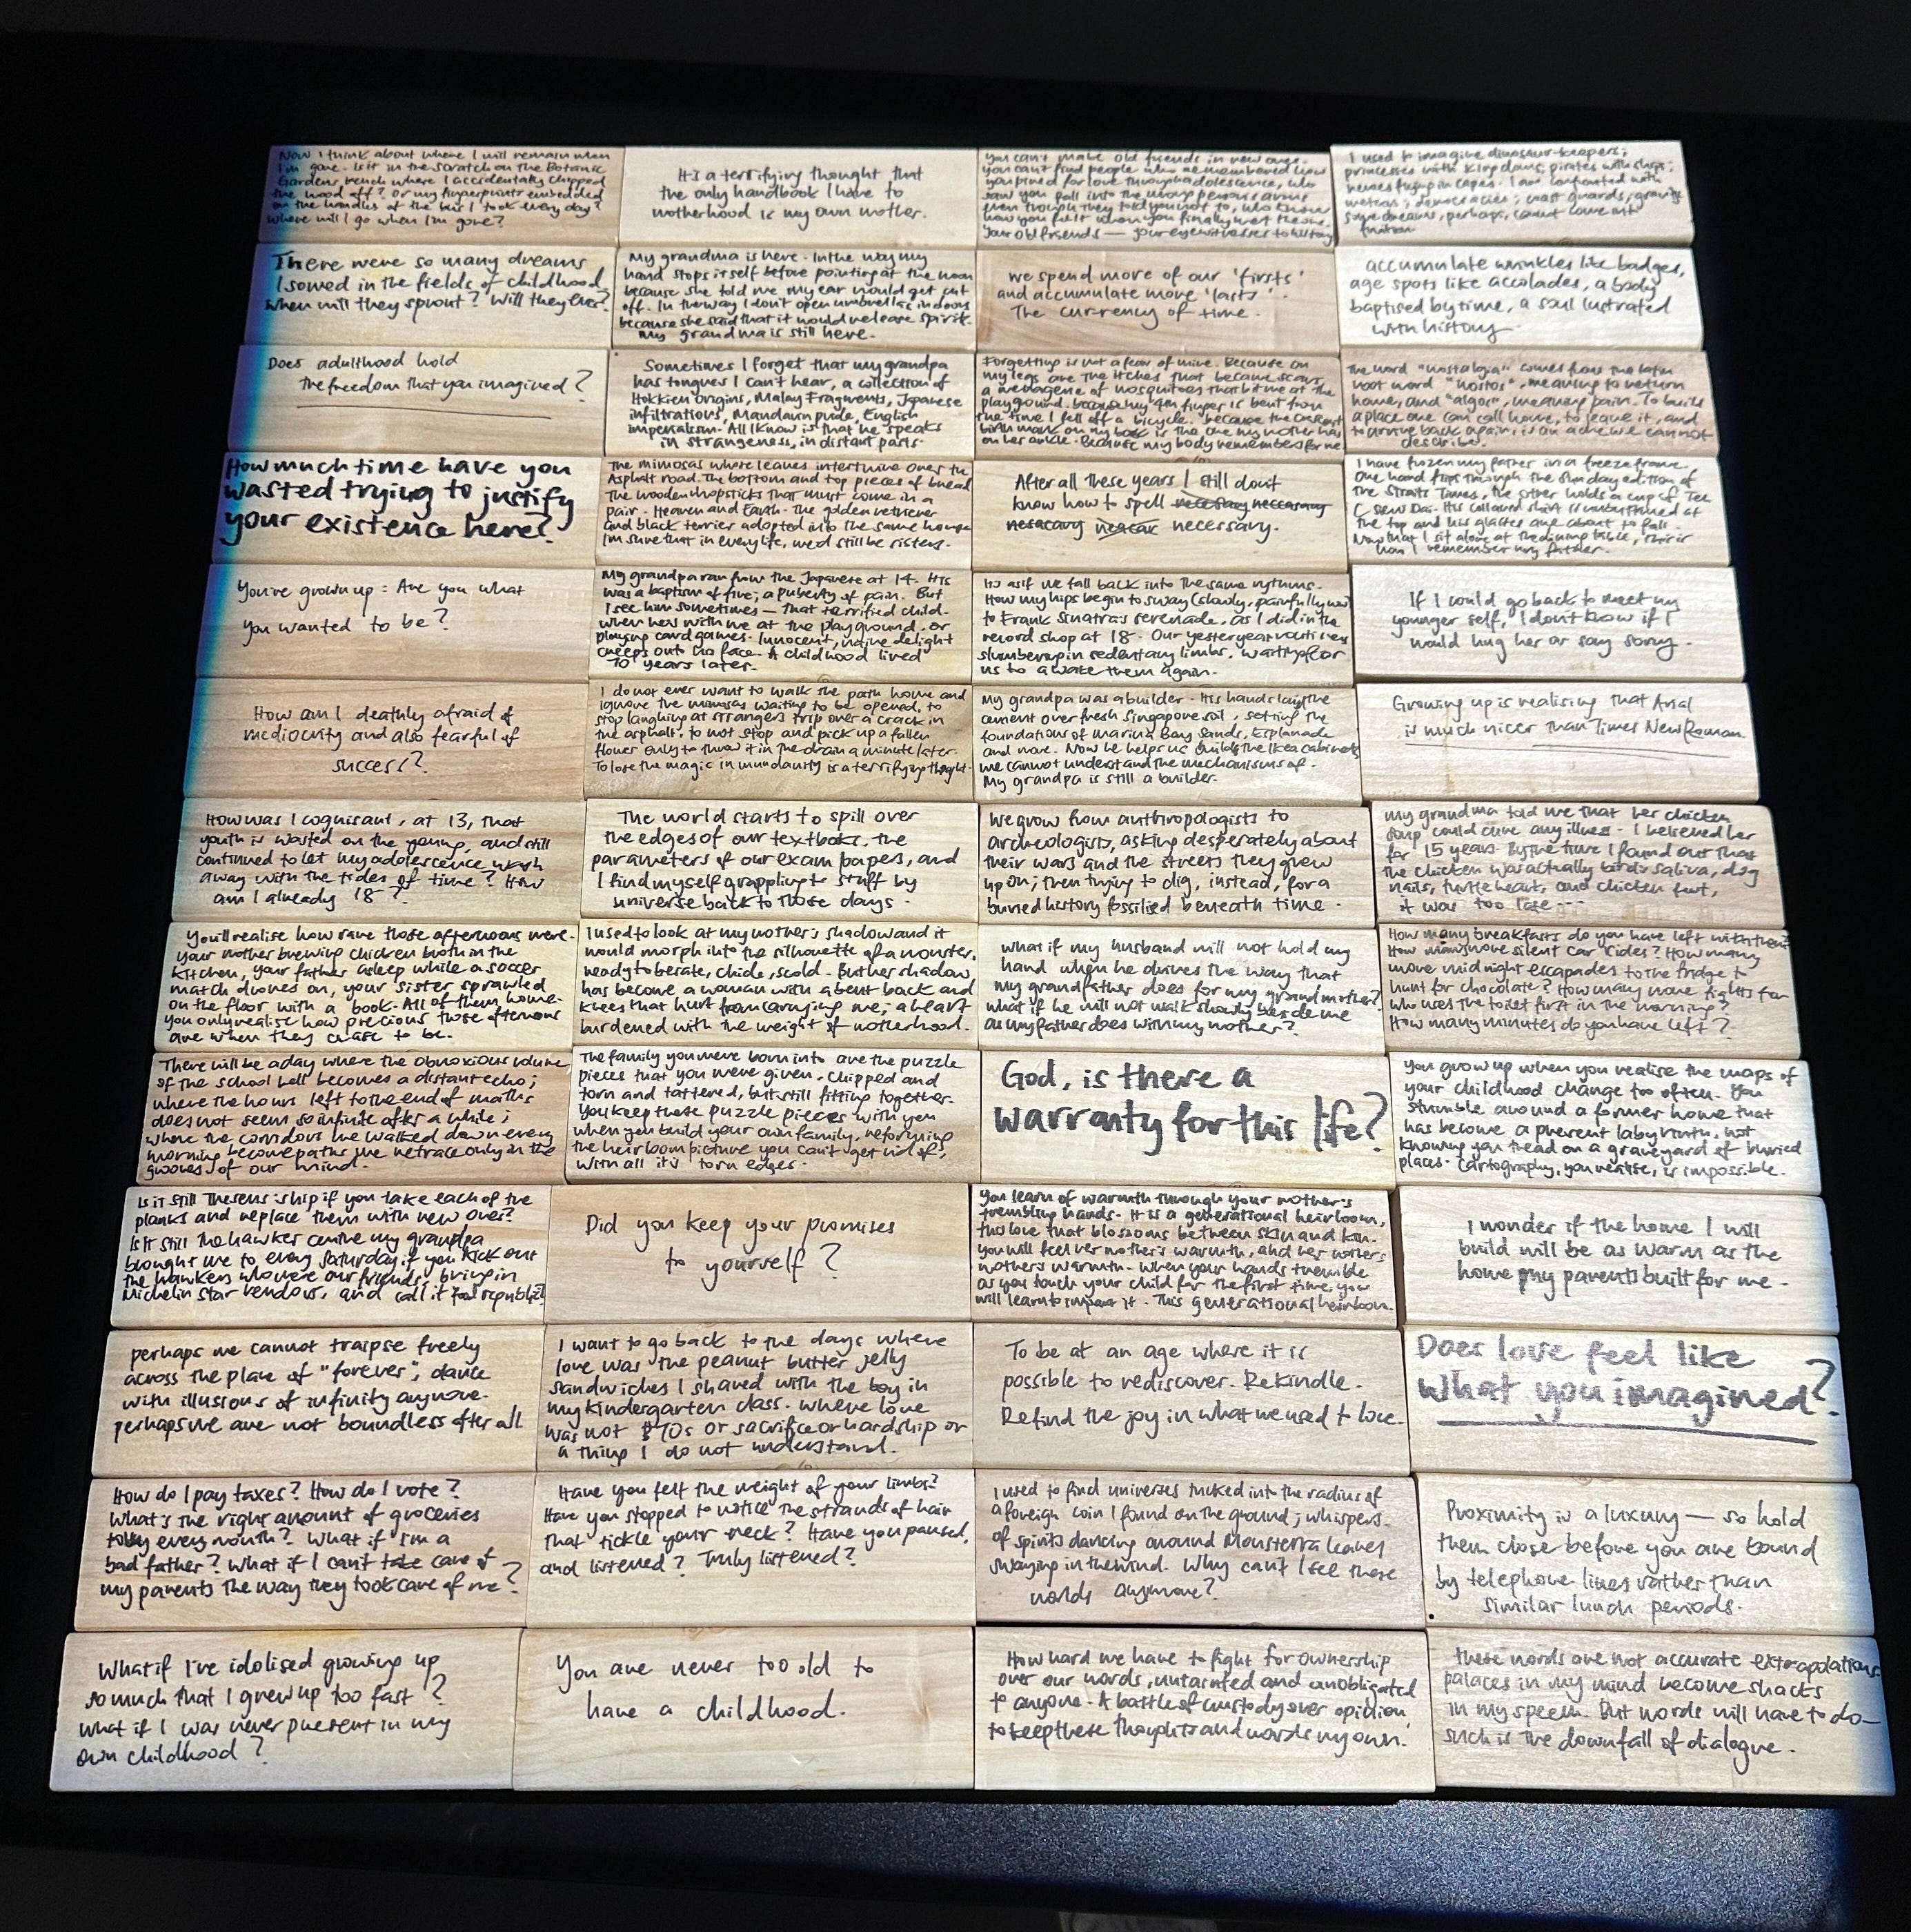 Now I think about where I will remain when
I'm gone. Is it in the scratch on the Botanic
Gardens bench where I accidentally chipped
the wood off? Or my fingerprints embedded
on the handles of the bus I took every day?
Where will I go when I'm gone?
It's a terrifying thought that
the only handbook I have to
motherhood is my own mother.
You can't make old friends in new ones.
You can't find people who remembered how
you pined for love through adolescence, who
saw you fall into the wrong person's arms
even though they told you not to, who know
how you felt when you finally met the one.
Your old friends — your eyewitnesses to history
I used to imagine dinosaur-keepers;
princesses with kingdoms, pirates with ships;
heroes in capes. I am confronted with
meteors; democracies; coast guards; gravity
some dreams, perhaps, cannot come into
fruition
There were so many dreams
I sowed in the fields of childhood,
when will they sprout? Will they ever?
My grandma is here. In the way my
hand stops itself before pointing at the moon
because she told me my ear would get cut
off. In the way I don't open umbrellas indoors
because she said that it would release spirits.
My grandma is still here.
We spend more of our 'firsts'
and accumulate more 'lasts'.
The currency of time.
accumulate wrinkles like badges,
age spots like accolades, a body
baptised by time, a soul lustrated
with history.
Does adulthood hold
the freedom that you imagined?
Sometimes I forget that my grandpa
has tongues I can't hear, a collection of
Hokkien origins, Malay Fragments, Japanese
infiltrations, Mandarin pride, English
imperialism. All I know is that he speaks
in strangeness, in distant parts.
Forgetting is not a fear of mine. Because on
my legs are the itches that became scars,
a of mosquitoes that bit me at the
playground. because my 4th finger is bent from
the time I fell off a bicycle. because the
birth mark on my back is the one my mother has
on her ankle. Because my body remembers for me
The word "nostalgia" comes from the latin
root word "nostos", meaning to return
home, and "algos", meaning pain. To build
a place one can call home, to leave it, and
to arrive back again, is an ache we cannot
describe.
How much time have you
wasted trying to justify
your existence here?
The mimosas whose leaves intertwine over the
Asphalt road. The bottom and top pieces of bread
The wooden chopsticks that must come in a
pair. Heaven and Earth. The golden retriever
and black terrier adopted into the same house
I'm sure that in every life, we'd still be sisters.
After all these years I still don't
know how to spell necesary neccesary
nesacary necessary.
I have frozen my father in a freeze frame.
One hand flips through the Sunday edition of
The Straits Times, the other holds a cup of Teh
C Siew Dai. His collared shirt is unbuttoned at
the top and his glasses are about to fall.
Now that I sit alone at the dining table, this is
how I remember my father.
You've grown up: Are you what
you wanted to be?
My grandpa ran from the Japanese at 14. His
was a baptism of fire; a puberty of pain. But
I see him sometimes — that terrified child.
when he's with me at the playground, or
playing card games. Innocent, naive delight
creeps onto his face. A childhood lived
70 years later.
It's as if we fall back into the same rythms.
How my hips begin to sway (slowly, painfully now)
to Frank Sinatra's serenade, as I did in the
record shop at 18. Our yesteryear routines
slumbering in sedentary limbs, waiting for
us to awake them again.
If I could go back to meet my
younger self, I don't know if I
would hug her or say sorry.
How am I deathly afraid of
mediocrity and also fearful of
success?
I do not ever want to walk the path home and
ignore the mimosas waiting to be opened, to
stop laughing at strangers trip over a crack in
the asphalt, to not stop and pick up a fallen
flower only to throw it in the drain a minute later.
To lose the magic in mundanity is a terrifying thought.
My grandpa was a builder. His hands laid the
cement over fresh Singapore soil, setting the
foundations of Marina Bay Sands, Esplanade
and more. Now he helps us build the Ikea cabinets
we cannot understand the mechanisms of.
My grandpa is still a builder.
Growing up is realising that Arial
is much nicer than Times New Roman.
How was I cognisant, at 13, that
youth is wasted on the young, and still
continued to let my adolescence wash
away with the tides of time? How
am I already 18?
The world starts to spill over
the edges of our textbooks, the
parameters of our exam papers, and
I find myself grappling to stuff by
universe back to those days.
We grow from anthropologists to
archeologists, asking desperately about
their wars and the streets they grew
up on; then trying to dig, instead, for a
buried history fossilised beneath time.
My grandma told me that her chicken
soup could cure any illness. I believed her
for 15 years. By the time I found out that
the chicken was actually bird's saliva, dog
nails, turtle heart, and chicken feet,
it was too late...
You'll realise how rare those afternoons were.
Your mother brewing chicken broth in the
kitchen, your father asleep while a soccer
match drones on, your sister sprawled
on the floor with a book. All of them, home.
you only realise how precious those afternoons
are when they cease to be.
I used to look at my mother's shadow and it
would morph into the silhouette of a monster,
ready to berate, chide, scold. But her shadow
has become a woman with a bent back and
knees that hurt from carrying me; a heart
burdened with the weight of motherhood.
What if my husband will not hold my
hand when he drives the way that
my grandfather does for my grandmother?
What if he will not walk slowly beside me
as my father does with my mother?
How many breakfasts do you have left with them?
How many more silent car rides? How many
more midnight escapades to the fridge to
hunt for chocolate? How many more fights for
who uses the toilet first in the morning?
How many minutes do you have left?
There will be a day where the obnoxious volume
of the school bell becomes a distant echo;
where the hours left to the end of maths
does not seem so infinite after a while;
where the corridors we walked down every
morning become paths we retrace only in the
grooves of our mind.
The family you were born into are the puzzle
pieces that you were given. Chipped and
torn and tattered, but still fitting together.
You keep these puzzle pieces with you
when you build your own family, reforming
the heirloom picture you can't get rid of,
with all it's torn edges.
God, is there a
warranty for this life?
You grow up when you realise the maps of
your childhood change too often. You
stumble around a former home that
has become a labyrinth, not
knowing you tread on a graveyard of buried
places. Cartography, you realise, is impossible.
Is it still Theseus' ship if you take each of the
planks and replace them with new ones?
Is it still the hawker centre my grandpa
brought me to every Saturday if you kick out
the hawkers who were our friends, bring in
Michelin Star vendors, and call it food republic?
Did you keep your promises
to yourself?
You learn of warmth through your mother's
trembling hands. It is a generational heirloom,
this love that blossoms between skin and kin.
You will feel her mother's warmth, and her mother's
mother's warmth. When your hands tremble
as you touch your child for the first time, you
will learn to impart it. This generational heirloom.
I wonder if the home I will
build will be as warm as the
home my parents built for me.
perhaps we cannot traipse freely
across the plane of "forever"; dance
with illusions of infinity anymore.
perhaps we are not boundless after all
I want to go back to the days where
love was the peanut butter jelly
sandwiches I shared with the boy in
my kindergarten class. Where love
was not $70s or sacrifice or hardship or
a thing I do not understand.
To be at an age where it is
possible to rediscover. Rekindle.
Refind the joy in what we used to love.
Does love feel like
what you imagined?
How do I pay taxes? How do I vote?
What's the right amount of groceries
to buy every month? What if I'm a
bad father? What if I can't take care of
my parents the way they took care of me?
Have you felt the weight of your limbs?
Have you stopped to notice the strands of hair
that tickle your neck? Have you paused,
and listened? Truly listened?
I used to find universes tucked into the radius of
a foreign coin I found on the ground; whispers
of spirits dancing around Monsterra leaves
swaying in the wind. Why can't I see these
worlds anymore?
Proximity is a luxury — so hold
them close before you are bound
by telephone lines rather than
similar lunch periods.
What if I've idolised growing up
so much that I grew up too fast?
What if I was never present in my
own childhood?
You are never too old to
have a childhood.
How hard we have to fight for ownership
over our words, untainted and unobligated
to anyone. A battle of custody over opinion
to keep these thoughts and words my own.
These words are not accurate extrapolations.
palaces in my mind become shacks
in my speech. But words will have to do—
such is the downfall of dialogue.